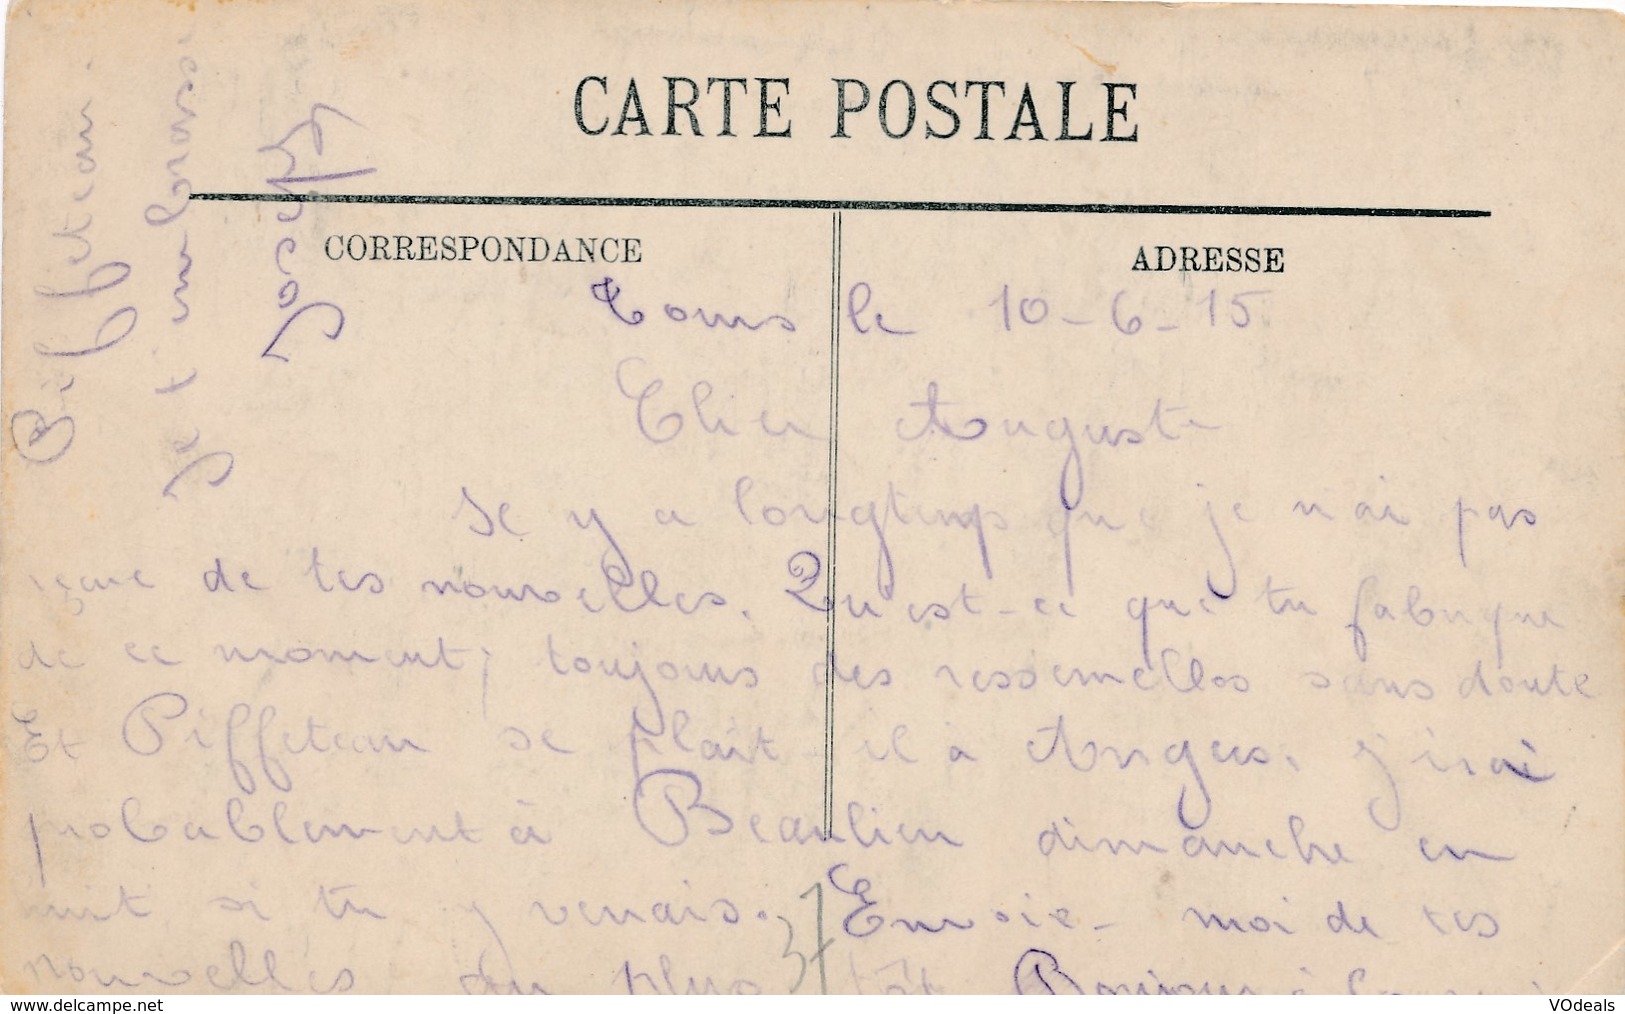 CARTE POSTALE
CORRESPONDANCE
ADRESSE
Tours le 10-6-15
Cher Auguste
Il y a longtemps que je n'ai pas
reçue de tes nouvelles. Qu'est-ce que tu fabrique
de ce moment; toujours des ressemelles sans doute
Et Piffeteau se plait-il à Angers. J'irai
probablement à Beaulieu dimanche en
huit si tu y venais. Envoie-moi de tes
nouvelles au plus tôt Bonjour à
37
Piffeteau.
Je t'embrasse
Joseph
www.delcampe.net
VOdeals